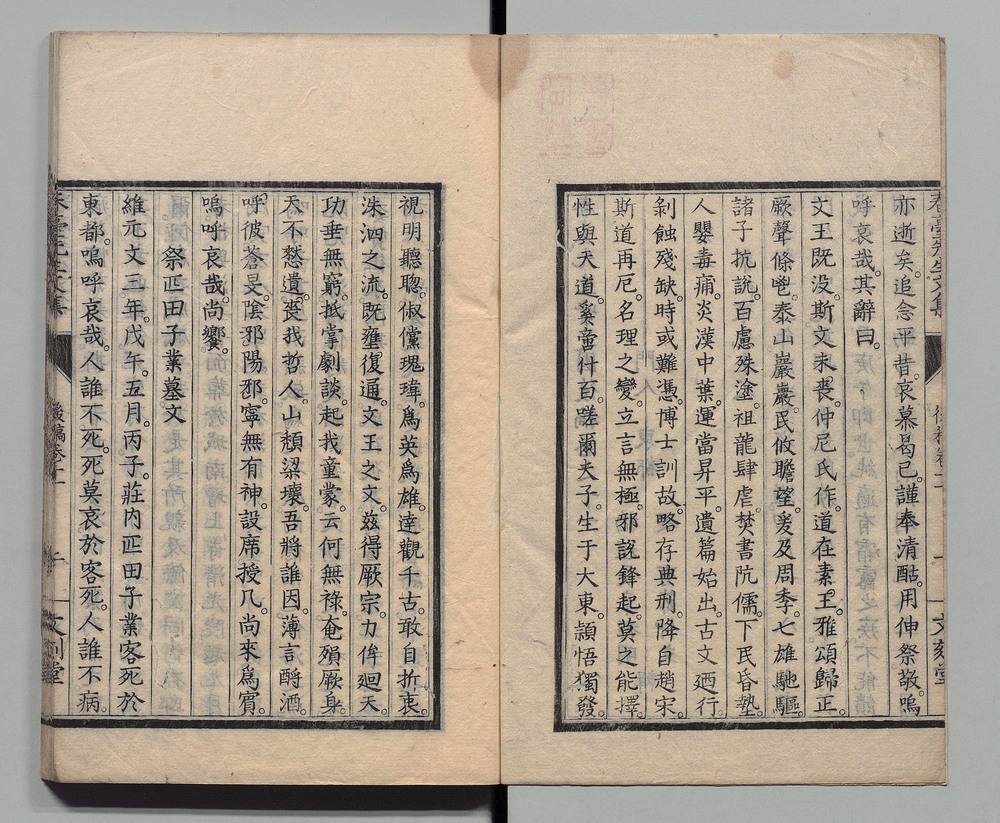 亦逝矣。追念平昔。哀慕曷已。謹奉清酤。用伸祭敬。嗚
呼哀哉。其辭曰。
文王既没。斯文未喪。仲尼氏作。道在素王。雅頌歸正。
厥聲條鬯。泰山巖巖。民攸瞻望。爰及周季。七雄馳驅。
諸子抗說。百慮殊塗。祖龍肆虐。焚書阬儒。下民昏墊。
人嬰毒痡。炎漢中葉。運當昇平。遺篇始出。古文廼行。
剝蝕殘缺。時或難憑。博士訓故。略存典刑。降自趙宋。
斯道再厄。名理之變。立言無極。邪說鋒起。莫之能擇。
性與天道。奚童什百。嗟爾夫子。生于大東。頴悟獨發。
視明聽聰。俶儻瑰瑋。爲英爲雄。達觀千古。敢自折衷。
洙泗之流。既壅復通。文王之文。茲得厥宗。力侔廻天。
功垂無窮。抵掌劇談。起我童蒙。云何無祿。奄殞厥身。
天不憖遺。喪我哲人。山頹梁壞。吾將誰因。薄言酹酒。
呼彼蒼旻。陰邪陽邪。寧無有神。設席授几。尚來爲賓。
嗚呼哀哉。尚饗。
祭匹田子業墓文
維元文三年。戊午。五月。丙子。莊内匹田子業客死於
東都。嗚呼哀哉。人誰不死。死莫哀於客死。人誰不病。
春臺先生文集
後稿卷十一
十
文刻堂